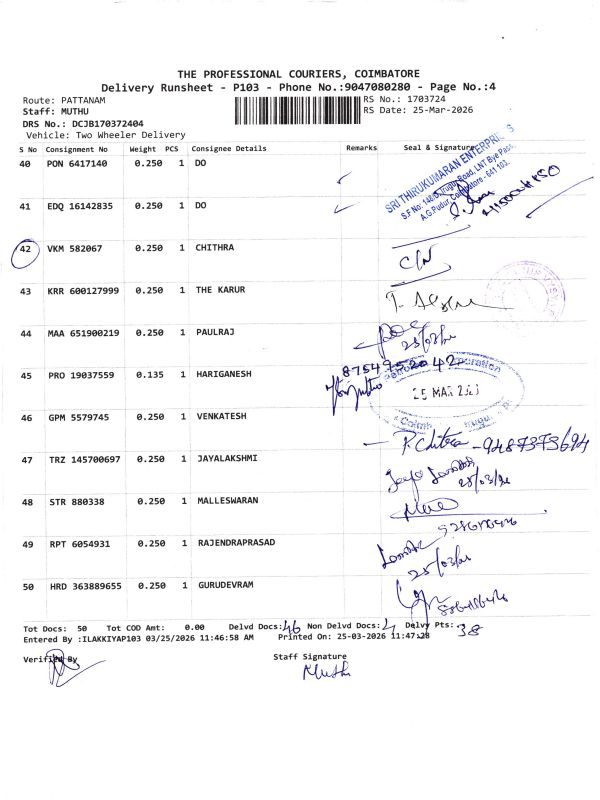 THE PROFESSIONAL COURIERS, COIMBATORE
Delivery Runsheet - P103 - Phone No.:9047080280 - Page No.:4
Route: PATTANAM RS No.: 1703724
Staff: MUTHU RS Date: 25-Mar-2026
DRS No.: DCJB170372404
Vehicle: Two Wheeler Delivery
S No Consignment No Weight PCS Consignee Details Remarks Seal & Signature
40 PON 6417140 0.250 1 DO
SRI THIRUKUMARAN ENTERPRISES
41 EDQ 16142835 0.250 1 DO
42 VKM 582067 0.250 1 CHITHRA
43 KRR 600127999 0.250 1 THE KARUR
44 MAA 651900219 0.250 1 PAULRAJ
45 PRO 19037559 0.135 1 HARIGANESH
25 MAR 2026
46 GPM 5579745 0.250 1 VENKATESH
P. Chitra - 9487373694
47 TRZ 145700697 0.250 1 JAYALAKSHMI
48 STR 880338 0.250 1 MALLESWARAN
49 RPT 6054931 0.250 1 RAJENDRAPRASAD
50 HRD 363889655 0.250 1 GURUDEVRAM
Tot Docs: 50 Tot COD Amt: 0.00 Delvd Docs: 46 Non Delvd Docs: 4 Delvy Pts: 38
Entered By :ILAKKIYAP103 03/25/2026 11:46:58 AM Printed On: 25-03-2026 11:47:28
Verified By Staff Signature
Muthu